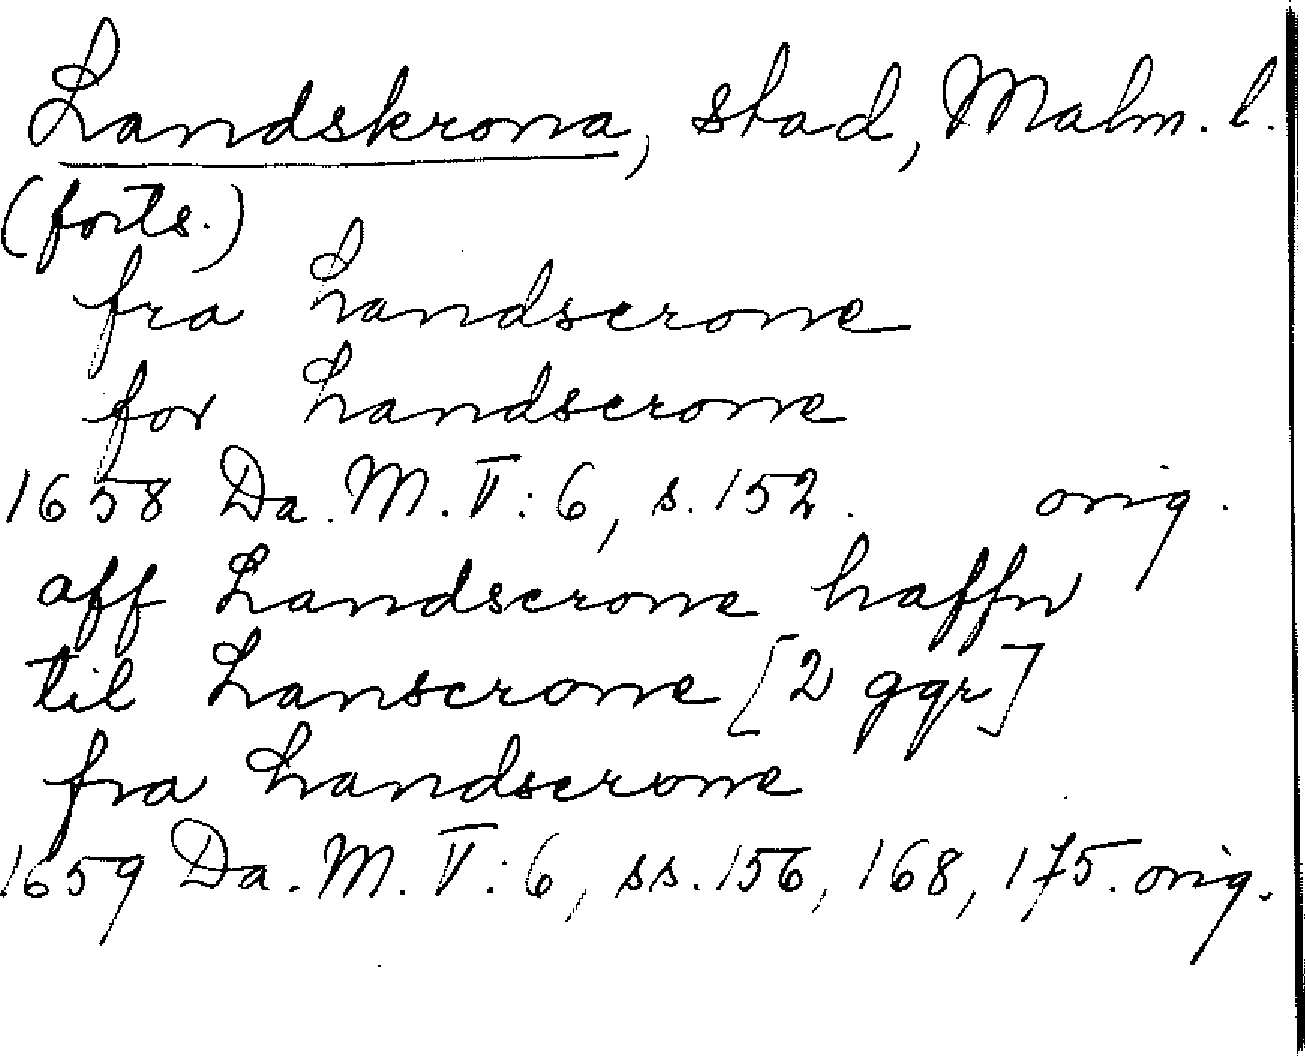 Landskrona, stad, Malm. l.
(forts.)
fra Landscrone
for Landscrone
1658 Da. M. V: 6, s. 152. orig.
aff Landscrone haffn
til Lanscrone [2 ggr]
fra Landscrone
1659 Da. M. V: 6, ss. 156, 168, 175. orig.